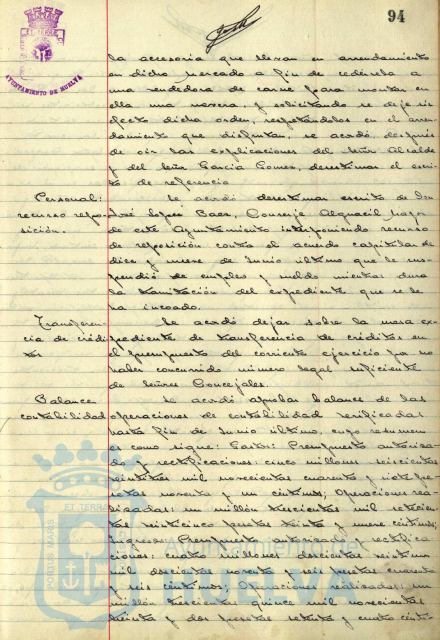 94
AYUNTAMIENTO DE HUELVA
la accesoria que llevan en arrendamiento
en dicho mercado a fin de cedérsela a
una vendedora de carne para montar en
ella una nevera, y solicitando se deje sin
efecto dicha orden, respetándolos en el arren-
damiento que disfrutan, se acordó, después
de oir las explicaciones del Señor Alcalde
y del Señor Garcia Gomez, desestimar el escri-
to de referencia
Personal: Se acordó desestimar escrito de Don
recurso repo- José López Baez, Conserje Alguacil mayor
sición. de este Ayuntamiento interponiendo recurso
de reposición contra el acuerdo capitular de
diez y nueve de Junio último que le sus-
pendió de empleo y sueldo mientras dura
la tramitación del expediente que se le
ha incoado.
Transferen- Se acordó dejar sobre la mesa ex-
cia de crédi- pediente de transferencia de créditos en
tos el presupuesto del corriente ejercicio por no
haber concurrido número legal suficiente
de Señores Concejales.
Balance Se acordó aprobar balance de las
contabilidad operaciones de contabilidad verificadas
hasta fin de Junio último, cuyo resumen
es como sigue: Gastos: Presupuesto autoriza-
do y rectificaciones: cinco millones seiscientas
veintitres mil novecientas cuarenta y siete pe-
setas noventa y un céntimos; Operaciones rea-
lizadas: un millón trescientas mil setecien-
tas veinticinco pesetas treinta y nueve céntimos;
Ingresos: Presupuesto autorizado y rectifica-
ciones: cuatro millones doscientas
mil doscientas noventa y seis pesetas cuarenta
y seis céntimos; Operaciones realizadas: un
millón trescientas quince mil novecientas
treinta y dos pesetas setenta y cuatro cénti-